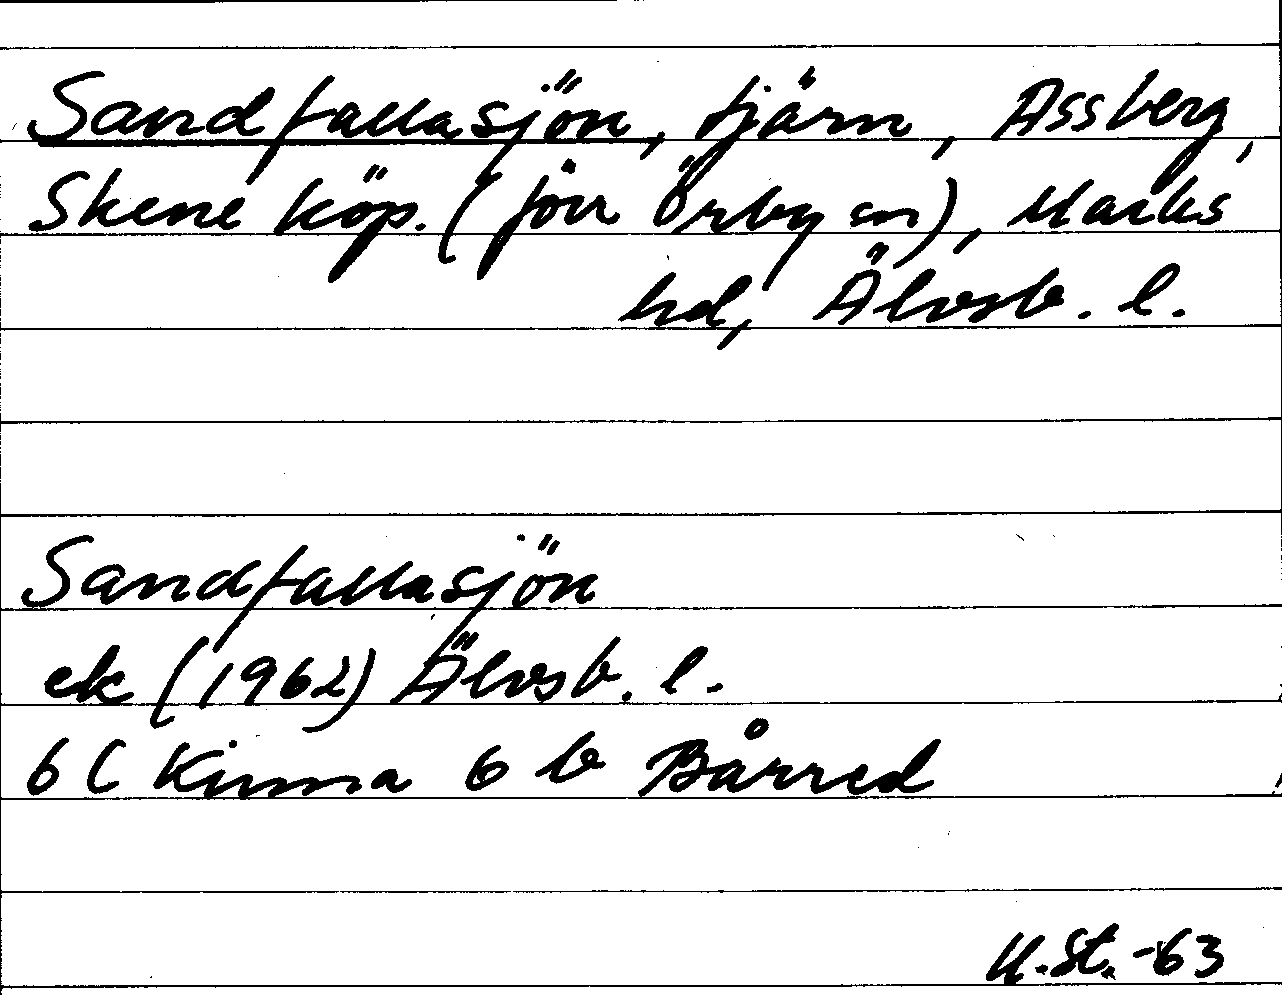 Sandfallasjön, tjärn, Assberg,
Skene köp. (förr Örby sn), Marks
hd, Älvsb. l.
Sandfallasjön
ek (1962) Älvsb. l.
6 C Kinna 6 b Bårred
U.St. -63